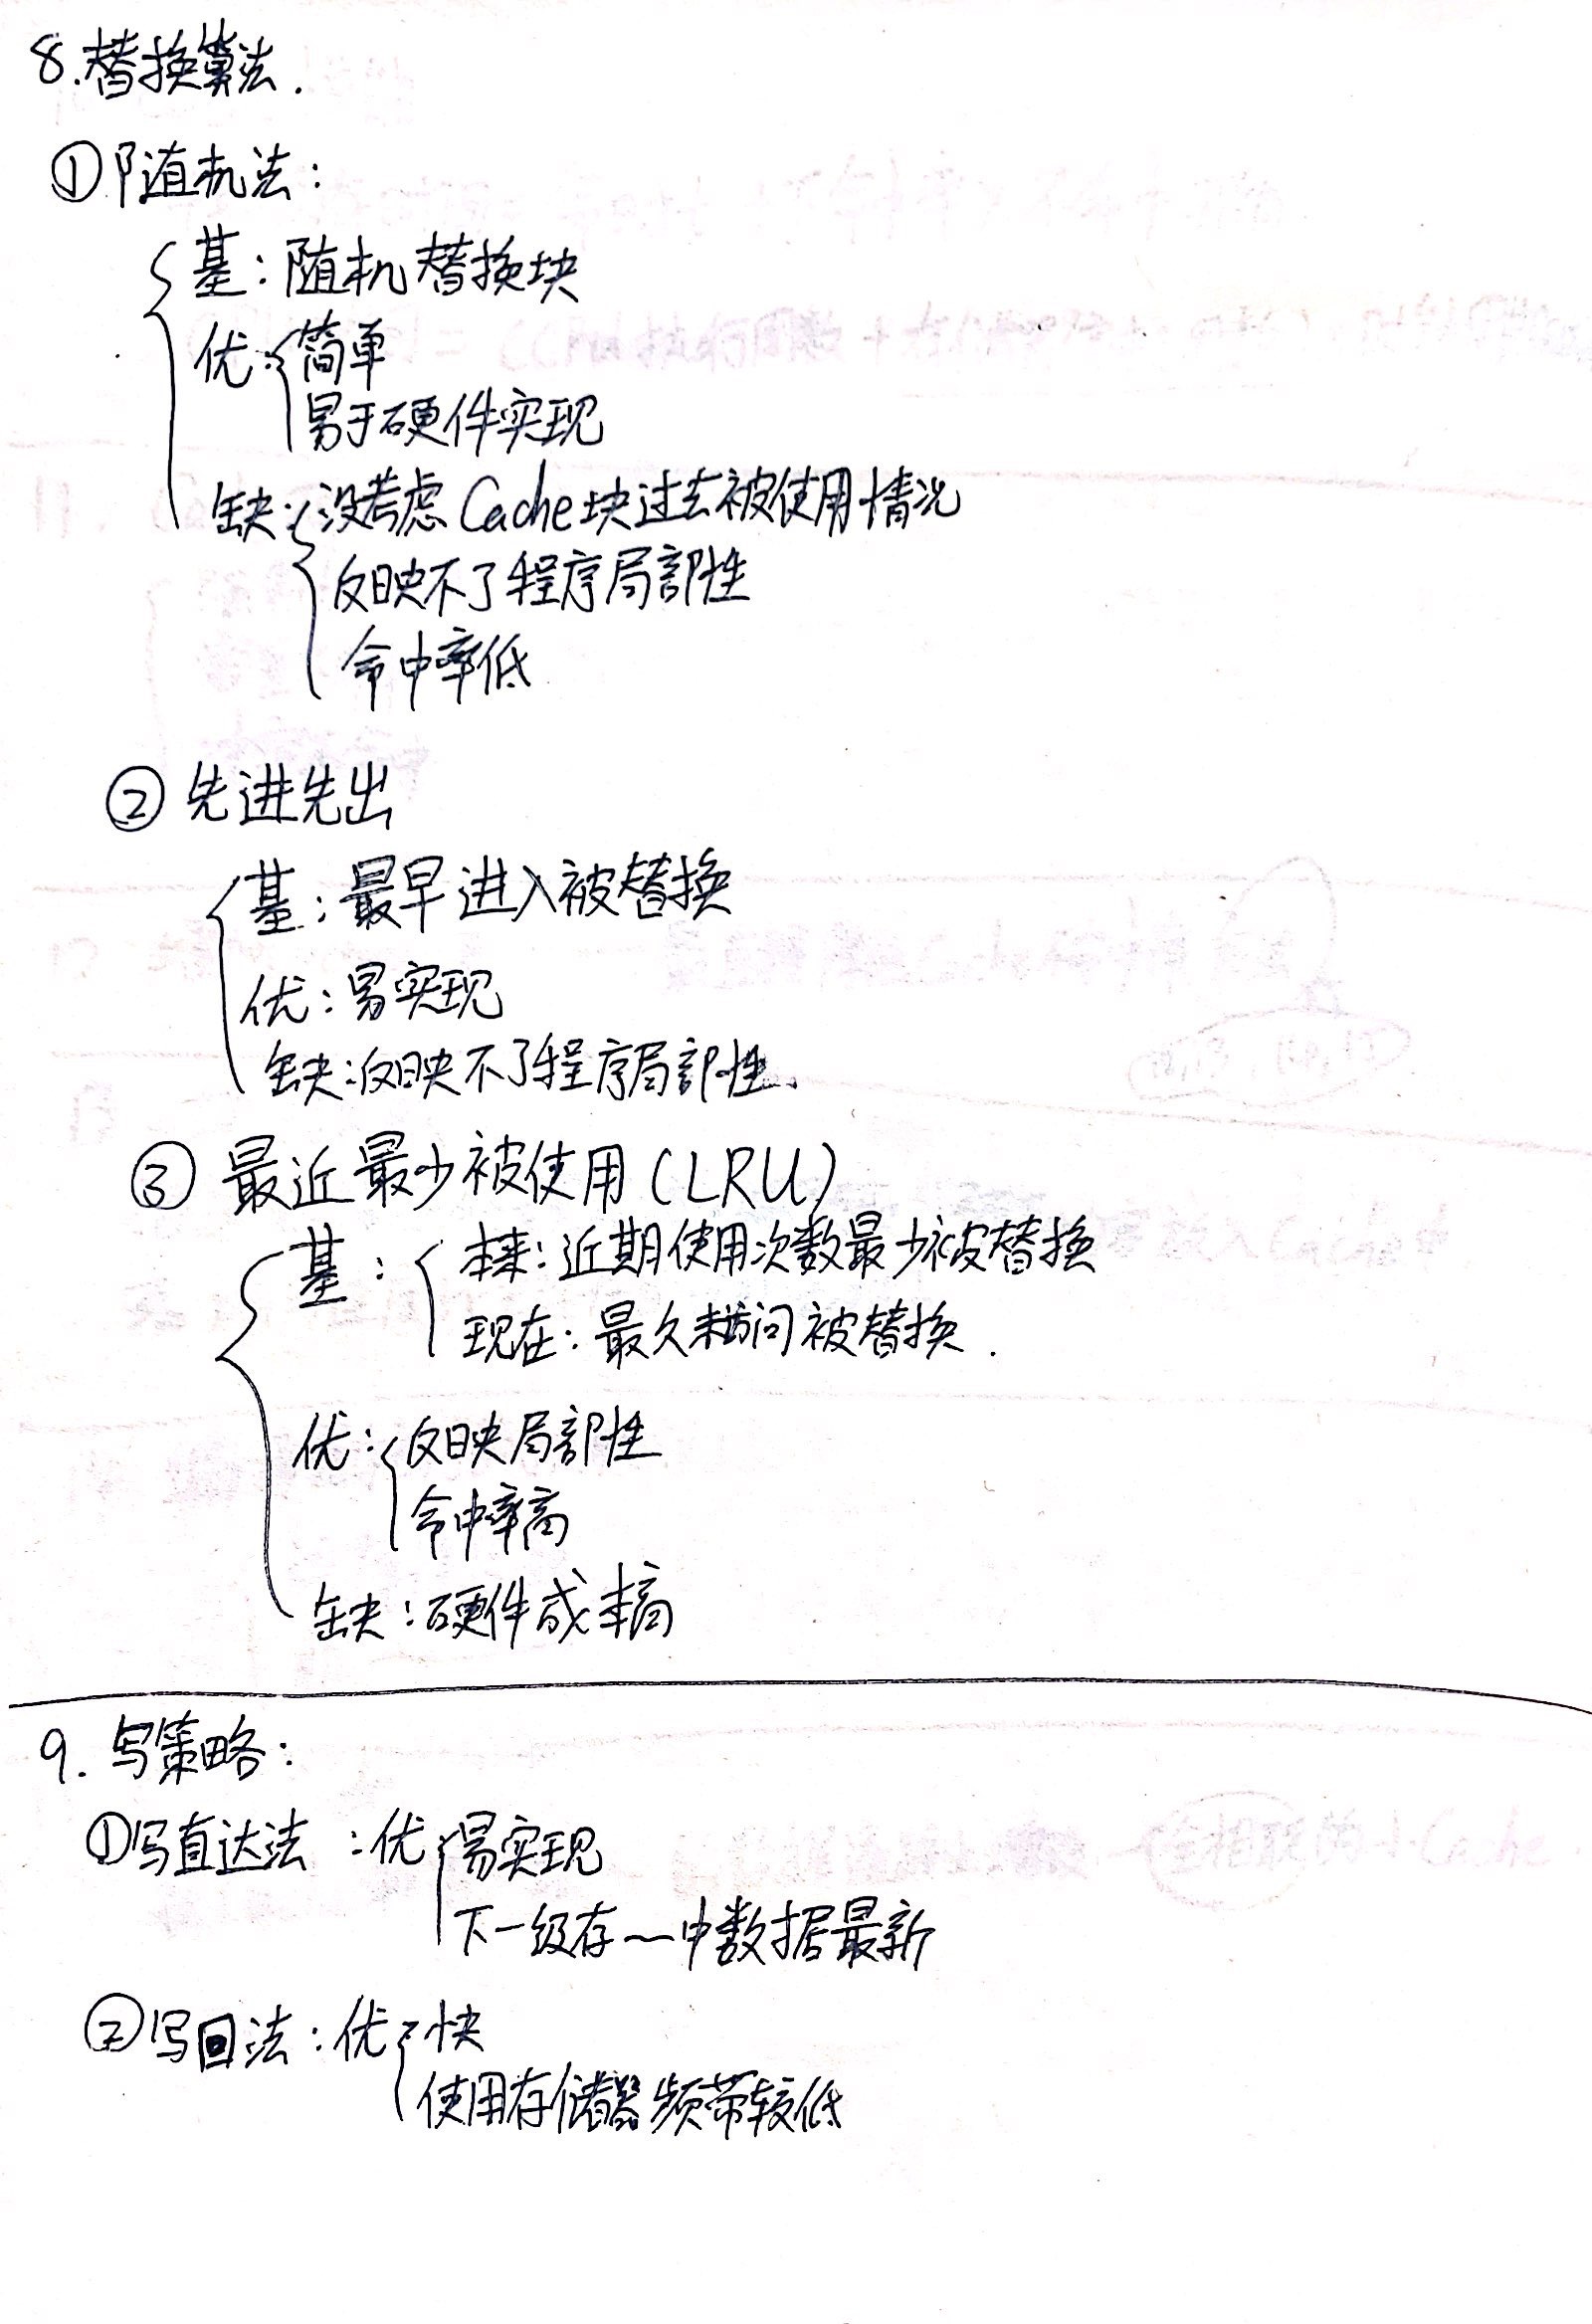 8.替换算法.
①随机法:
基:随机替换块
优:简单
易于硬件实现
缺:没考虑Cache块过去被使用情况
反映不了程序局部性
命中率低
②先进先出
基:最早进入被替换
优:易实现
缺:反映不了程序局部性.
③最近最少被使用(LRU)
基:本来:近期使用次数最少被替换
现在:最久未访问被替换.
优:反映局部性
命中率高
缺:硬件成本高
9.写策略:
①写直达法:优易实现
下一级存~中数据最新
②写回法:优快
使用存储器频带较低